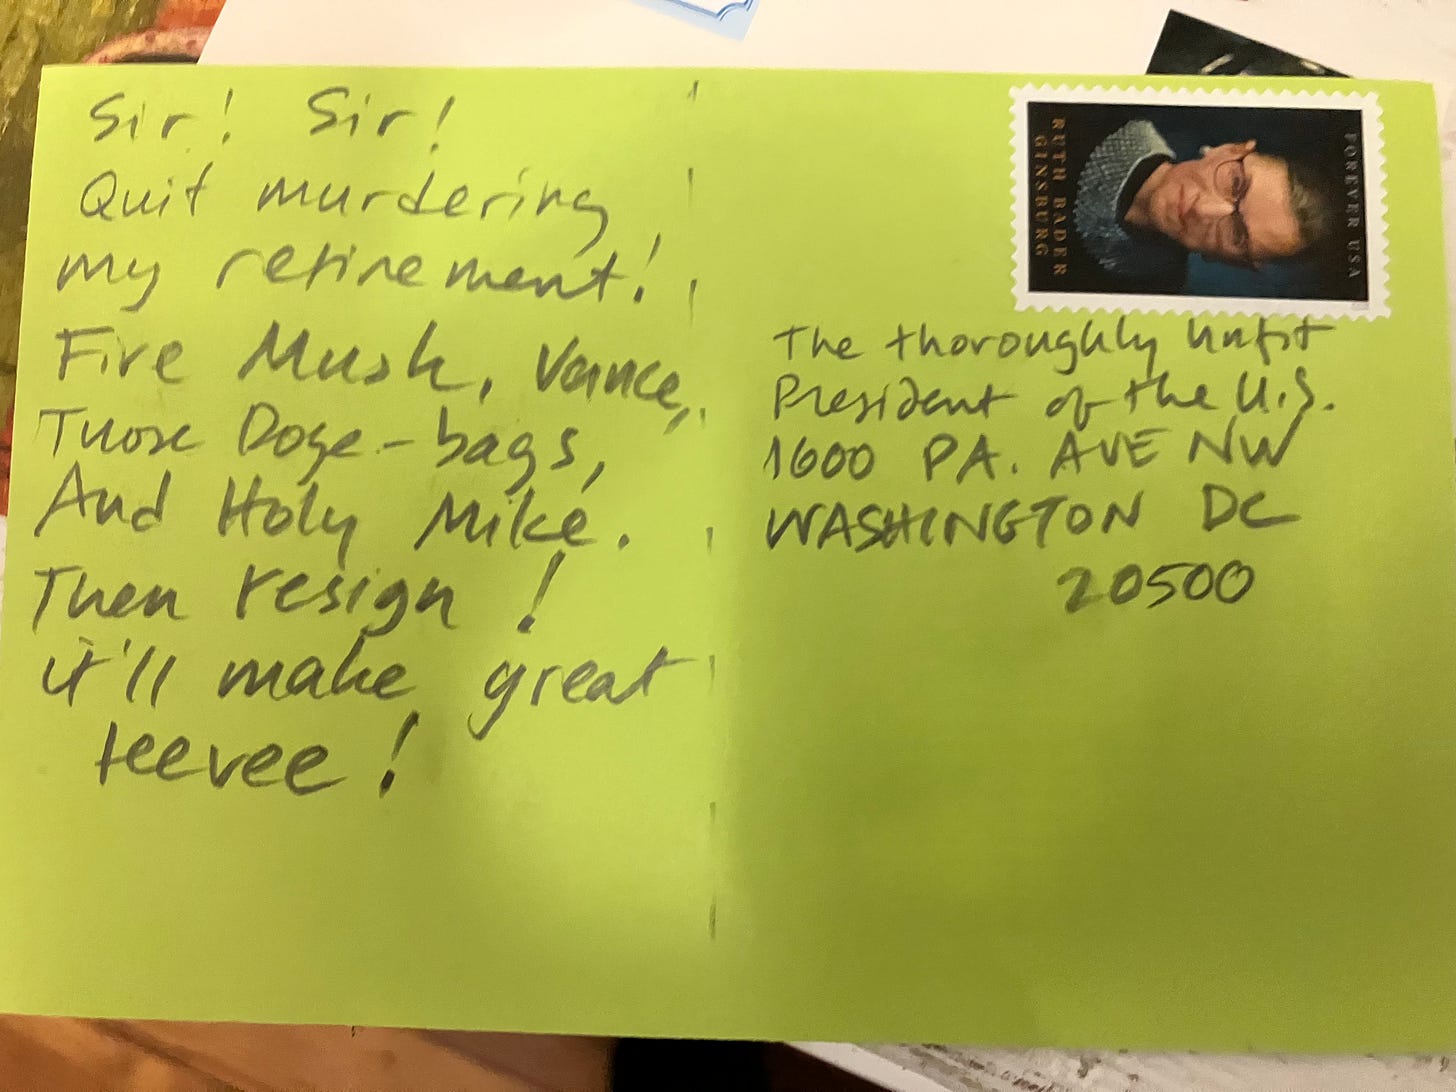 Sir! Sir!
Quit murdering
my retirement!
Fire Musk, Vance,
Those Doge-bags,
And Holy Mike.
Then resign!
it'll make great
teevee!
FOREVER USA
RUTH BADER
GINSBURG
The thoroughly unfit
President of the U.S.
1600 PA. AVE NW
WASHINGTON DC
20500